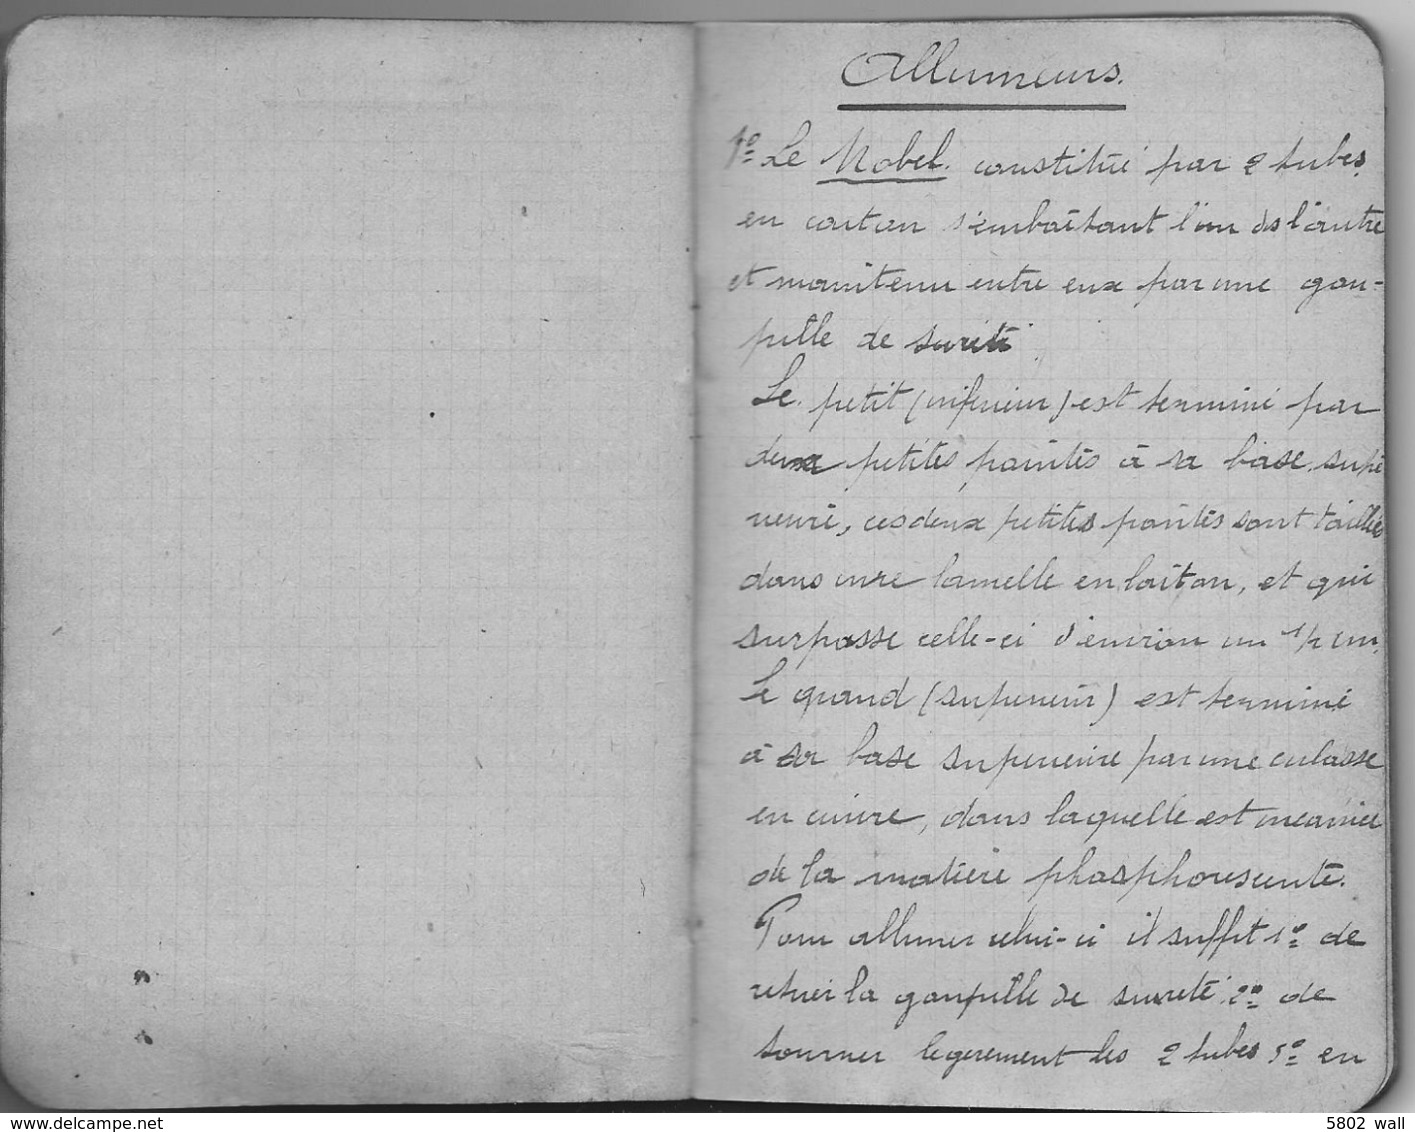 Allumeurs.
1º Le Nobel. constitué par 2 tubes
en carton s'emboîtant l'un ds l'autre
et maintenu entre eux par une gou-
pille de sureté.
Le petit (inférieur) est terminé par
deux petites pointes à sa base supé
rieure, ces deux petites pointes sont taillées
dans une lamelle en laiton, et qui
surpasse celle-ci d'environ un 1/2 cm.
Le grand (superieur) est terminé
à sa base superieure par une culasse
en cuivre, dans laquelle est
de la matière phosphorescente.
Pour allumer celui-ci il suffit 1º de
retirer la goupille de sureté 2º de
tourner legerement les 2 tubes 3º en
delcampe.net
5802 wall